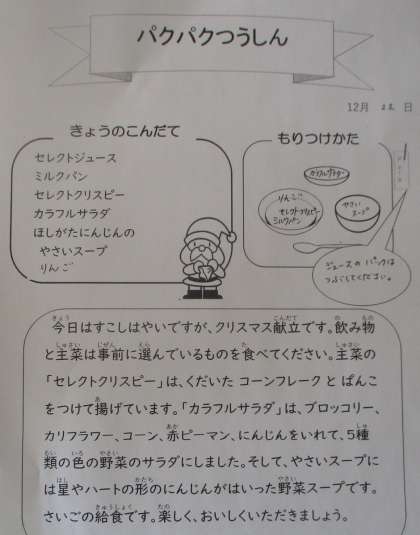 パクパクつうしん
12月 22 日
きょうのこんだて
セレクトジュース
ミルクパン
セレクトクリスピー
カラフルサラダ
ほしがたにんじんの
やさいスープ
りんご
もりつけかた
カラフルサラダ
りんご
セレクトクリスピー
ミルクパン
やさい
スープ
ジュースのパックは
つぶしてください。
今日はすこしはやいですが、クリスマス献立です。飲み物
と主菜は事前に選んでいるものを食べてください。主菜の
「セレクトクリスピー」は、くだいた コーンフレーク と ぱんこ
をつけて揚げています。「カラフルサラダ」は、ブロッコリー、
カリフラワー、コーン、赤ピーマン、にんじんをいれて、5種
類の色の野菜のサラダにしました。そして、やさいスープに
は星やハートの形のにんじんがはいった野菜スープです。
さいごの給食です。楽しく、おいしくいただきましょう。